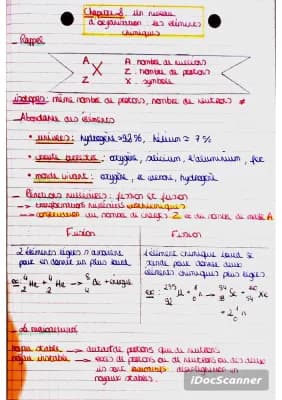 Chapitre 8 : Un niveau
d'organisation : les éléments
chimiques
_ Rappel
A A nombre de nucléons
X Z : nombre de protons
Z X : symbole
isotopes : même nombre de protons, nombre de neutrons ≠
_ Abondance des éléments
• univers : hydrogène ≈ 92%, hélium ≈ 7%
• croûte terrestre : oxygène, silicium, l'aluminium, fer
• monde vivant : oxygène, carbone, hydrogène
_ Réactions nucléaires : fission et fusion
→ transformations nucléaires
→ conservation du nombre de charges Z et du nombre de masse A
Fusion
Fission
2 éléments légers
pour en donner un plus lourd
ex : 4 2 He + 4 2 He → 8 4 Be + énergie
1 élément chimique lourd se
scinde pour donner deux
éléments chimiques plus légers
ex : 235 92 U + 1 0 n → 94 38 Sr + 140 54 Xe
+ 2 1 0 n
_ La radioactivité
noyau stable → autant de protons que de neutrons
noyau instable → excès de protons ou de neutrons ou des deux
noyaux stables.
iDocScanner